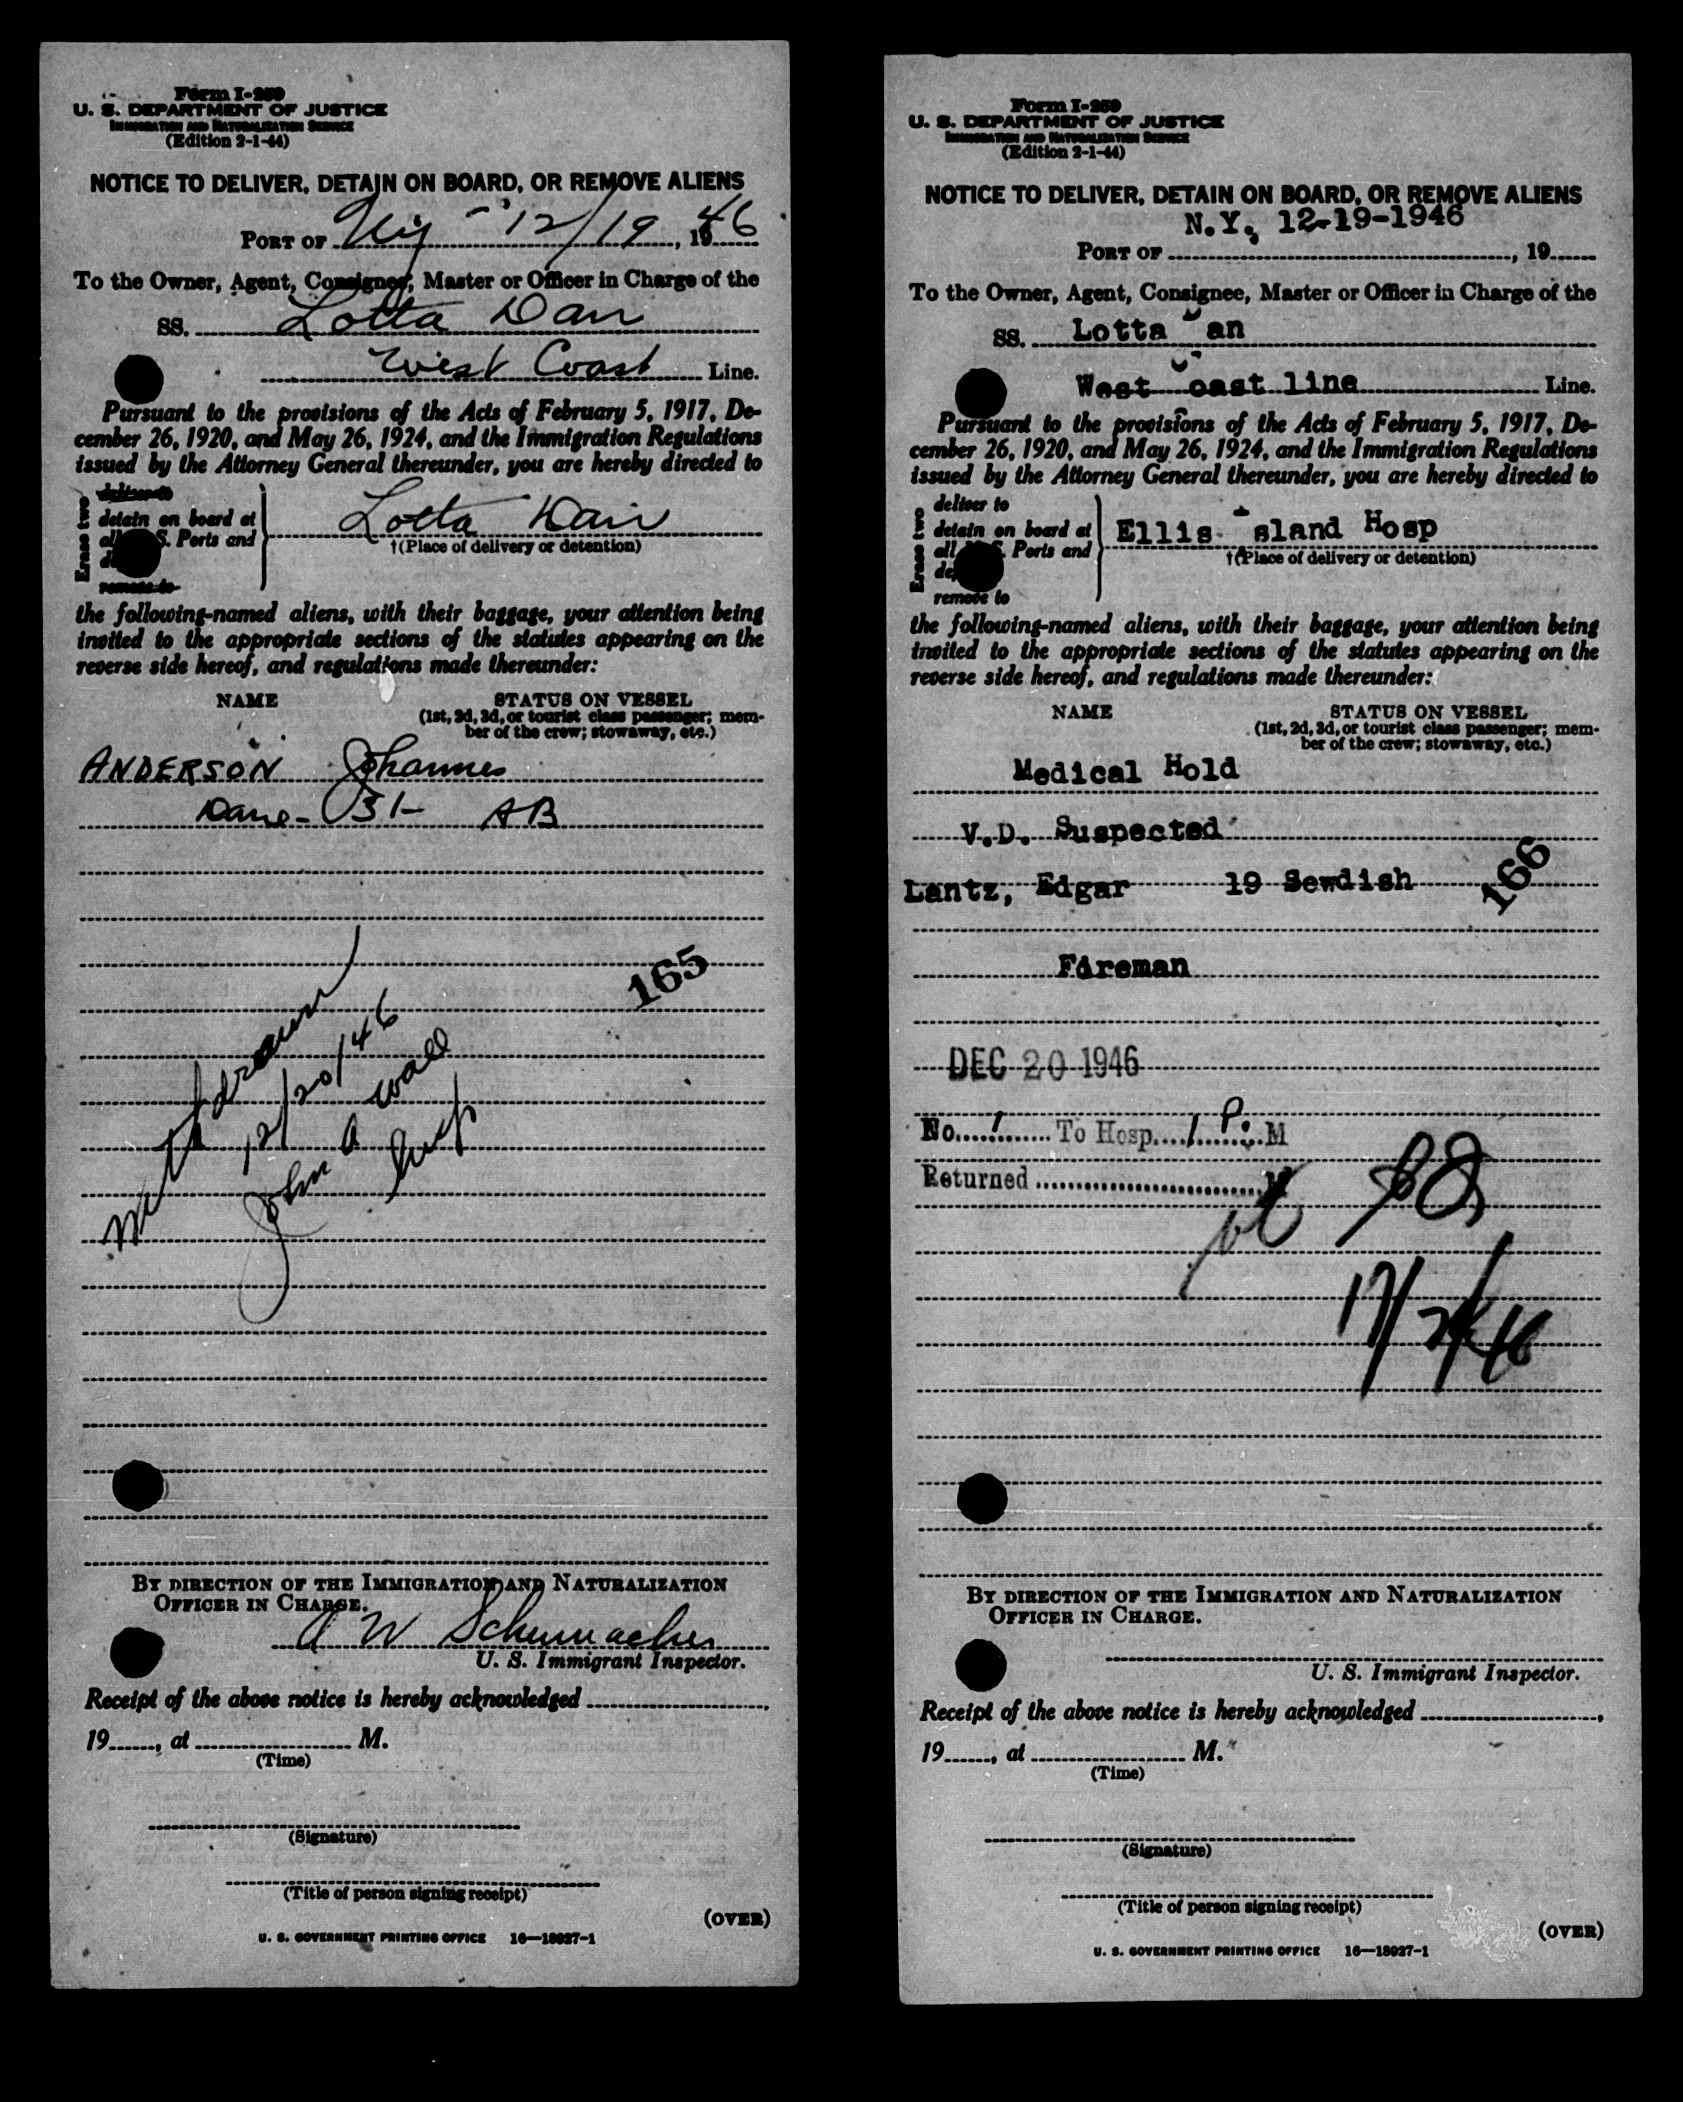 Form I-259
U. S. DEPARTMENT OF JUSTICE
IMMIGRATION AND NATURALIZATION SERVICE
(Edition 2-1-44)
NOTICE TO DELIVER, DETAIN ON BOARD, OR REMOVE ALIENS
PORT OF NY 12/19, 1946
To the Owner, Agent, Consignee, Master or Officer in Charge of the
SS. Lotta Dan
West Coast Line.
Pursuant to the provisions of the Acts of February 5, 1917, De-
cember 26, 1920, and May 26, 1924, and the Immigration Regulations
issued by the Attorney General thereunder, you are hereby directed to
Erase two
deliver to
detain on board at
all S. Ports and
remove to
Lotta Dan
†(Place of delivery or detention)
the following-named aliens, with their baggage, your attention being
invited to the appropriate sections of the statutes appearing on the
reverse side hereof, and regulations made thereunder:
NAME STATUS ON VESSEL
(1st, 2d, 3d, or tourist class passenger; mem-
ber of the crew; stowaway, etc.)
ANDERSON Johannes
Dane - 31 - AB
165
Withdrawn
12/20/46
John A Wall
Insp
BY DIRECTION OF THE IMMIGRATION AND NATURALIZATION
OFFICER IN CHARGE.
A W Schumacher
U. S. Immigrant Inspector.
Receipt of the above notice is hereby acknowledged ,
19 , at M.
(Time)
(Signature)
(Title of person signing receipt)
(OVER)
U. S. GOVERNMENT PRINTING OFFICE 16—18027-1
Form I-259
U. S. DEPARTMENT OF JUSTICE
IMMIGRATION AND NATURALIZATION SERVICE
(Edition 2-1-44)
NOTICE TO DELIVER, DETAIN ON BOARD, OR REMOVE ALIENS
N.Y., 12-19-1946
PORT OF , 19
To the Owner, Agent, Consignee, Master or Officer in Charge of the
SS. Lotta Dan
West Coast line Line.
Pursuant to the provisions of the Acts of February 5, 1917, De-
cember 26, 1920, and May 26, 1924, and the Immigration Regulations
issued by the Attorney General thereunder, you are hereby directed to
Erase two
deliver to
detain on board at
all S. Ports and
remove to
Ellis Island Hosp
†(Place of delivery or detention)
the following-named aliens, with their baggage, your attention being
invited to the appropriate sections of the statutes appearing on the
reverse side hereof, and regulations made thereunder:
NAME STATUS ON VESSEL
(1st, 2d, 3d, or tourist class passenger; mem-
ber of the crew; stowaway, etc.)
Medical Hold
V.D. Suspected
Lantz, Edgar 19 Sewdish
166
Fireman
DEC 20 1946
No. 1 To Hosp. 1 P. M
Returned M
BY DIRECTION OF THE IMMIGRATION AND NATURALIZATION
OFFICER IN CHARGE.
U. S. Immigrant Inspector.
Receipt of the above notice is hereby acknowledged ,
19 , at M.
(Time)
(Signature)
(Title of person signing receipt)
(OVER)
U. S. GOVERNMENT PRINTING OFFICE 16—18027-1